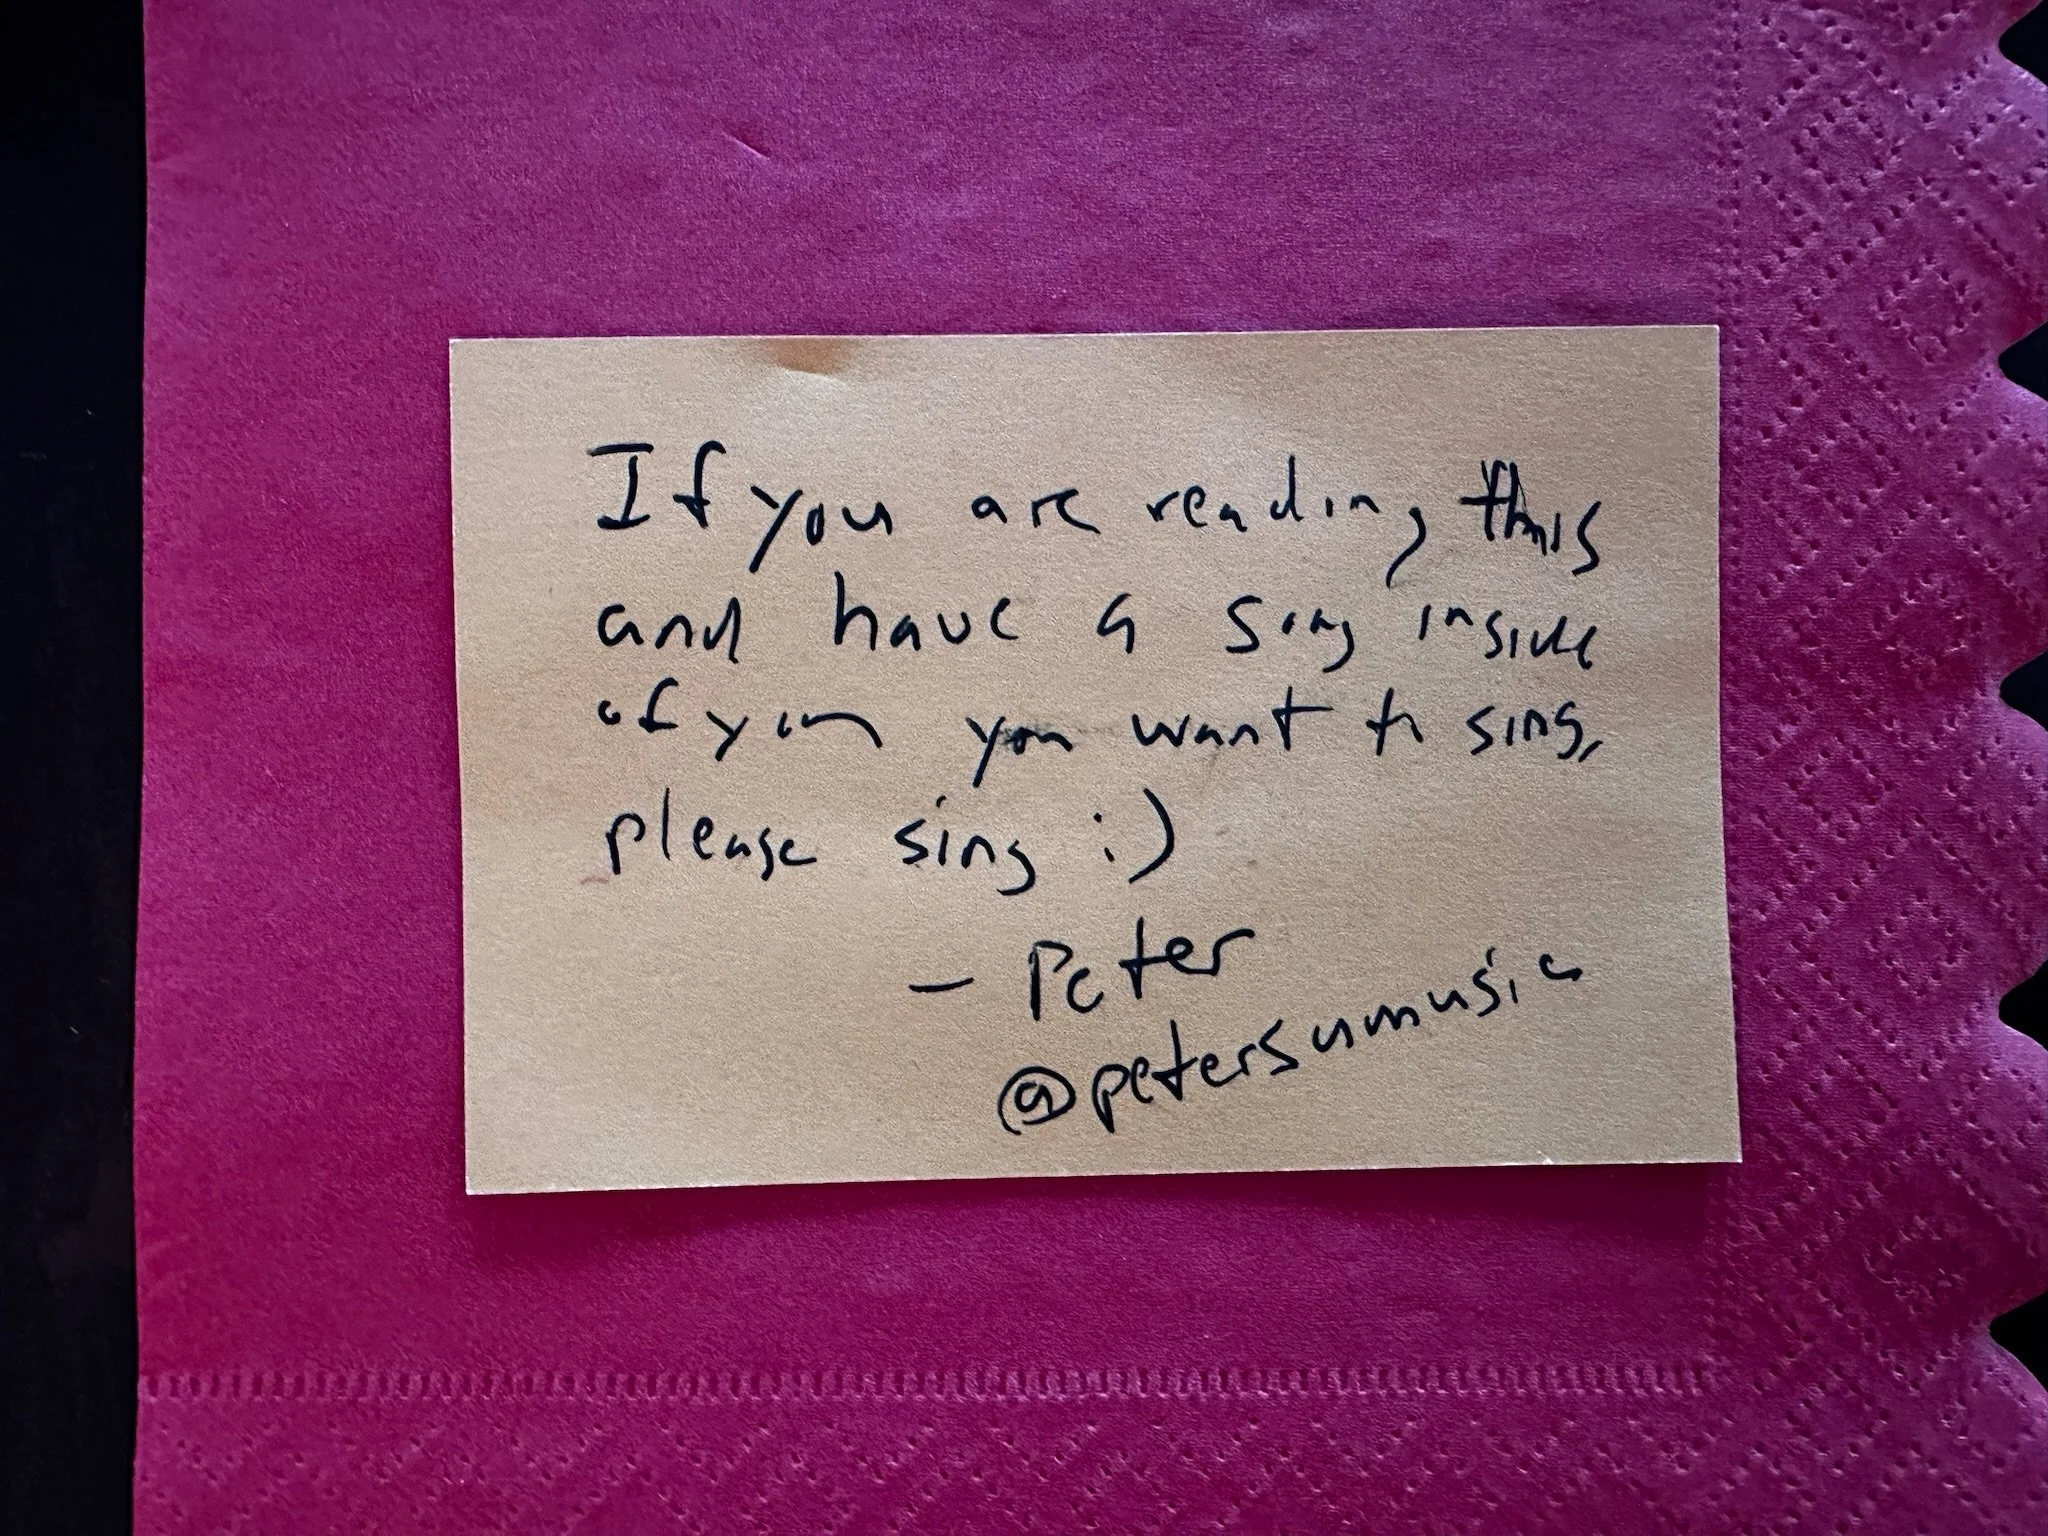 If you are reading this
and have a song inside
of you you want to sing,
please sing :)
- Peter
@petersumusic